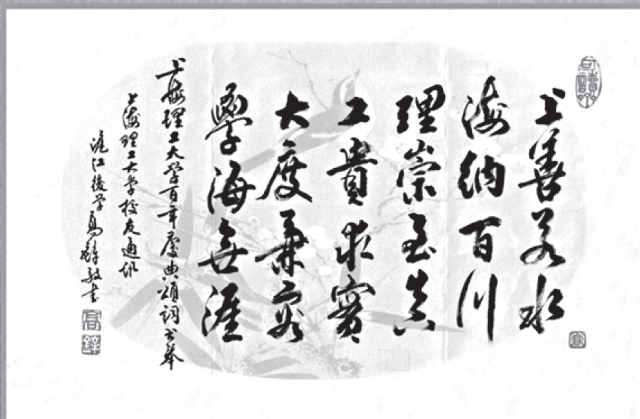 上善若水
海納百川
理崇至真
工貴求實
大度兼容
學海無涯
上海理工大学百年慶典頌詞书奉
上海理工大学校友通訊
滬江後学高敬书